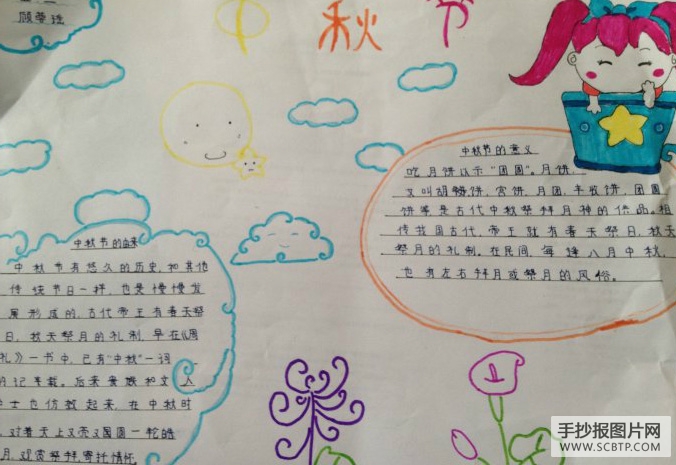 顾蓉
中秋节
中秋节的意义
吃月饼以示“团圆”。月饼,
又叫胡饼,宫饼、月团、丰收饼、团圆
饼等是古代中秋祭拜月神的供品。相
传我国古代,帝王就有春天祭日,秋天
祭月的礼制。在民间,每逢八月中秋,
也有左右拜月或祭月的风俗。
中秋节的由来
中秋节有悠久的历史,和其他
传统节日一样,也是慢慢发
展形成的,古代帝王有春天祭
日,秋天祭月的礼制,早在《周
礼》一书中,已有“中秋”一词
的记载。后来贵族和文人
学士也仿效起来,在中秋时
对着天上又亮又圆一轮皓
月,观赏祭拜,寄托情怀
手抄报图片网
WWW.SCBTP.COM